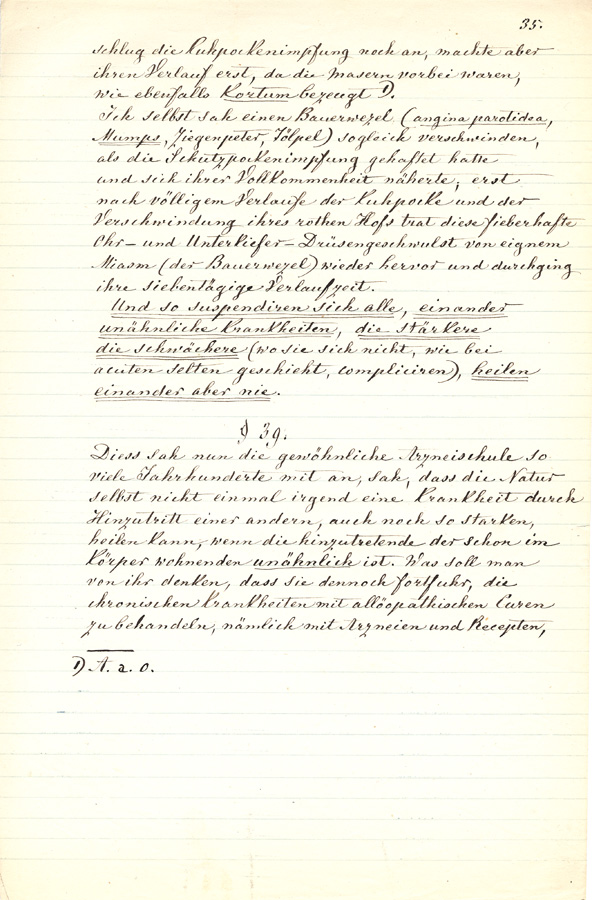 35.
schlug die Kuhpockenimpfung noch an, machte aber
ihren Verlauf erst, da die Masern vorbei waren,
wie ebenfalls Kortum bezeugt 1).
Ich selbst sah einen Bauerwezel (angina parotidea,
Mumps, Ziegenpeter, Tölpel) sogleich verschwinden,
als die Schutzpockenimpfung gehaftet hatte
und sich ihrer Vollkommenheit näherte; erst
nach völligem Verlaufe der Kuhpocke und der
Verschwindung ihres rothen Hofs trat diese fieberhafte
Ohr- und Unterkiefer-Drüsengeschwulst von eignem
Miasm (der Bauerwezel) wieder hervor und durchging
ihre siebentägige Verlaufzeit.
Und so suspendiren sich alle, einander
unähnliche Krankheiten, die stärkere
die schwächere (wo sie sich nicht, wie bei
acuten selten geschieht, compliciren), heilen
einander aber nie.
§ 39.
Diess sah nun die gewöhnliche Arzneischule so
viele Jahrhunderte mit an, sah, dass die Natur
selbst nicht einmal irgend eine Krankheit durch
Hinzutritt einer andern, auch noch so starken,
heilen kann, wenn die hinzutretende der schon im
Körper wohnenden unähnlich ist. Was soll man
von ihr denken, dass sie dennoch fortfuhr, die
chronischen Krankheiten mit allöopathischen Curen
zu behandeln, nämlich mit Arzneien und Recepten,
1) A. a. O.